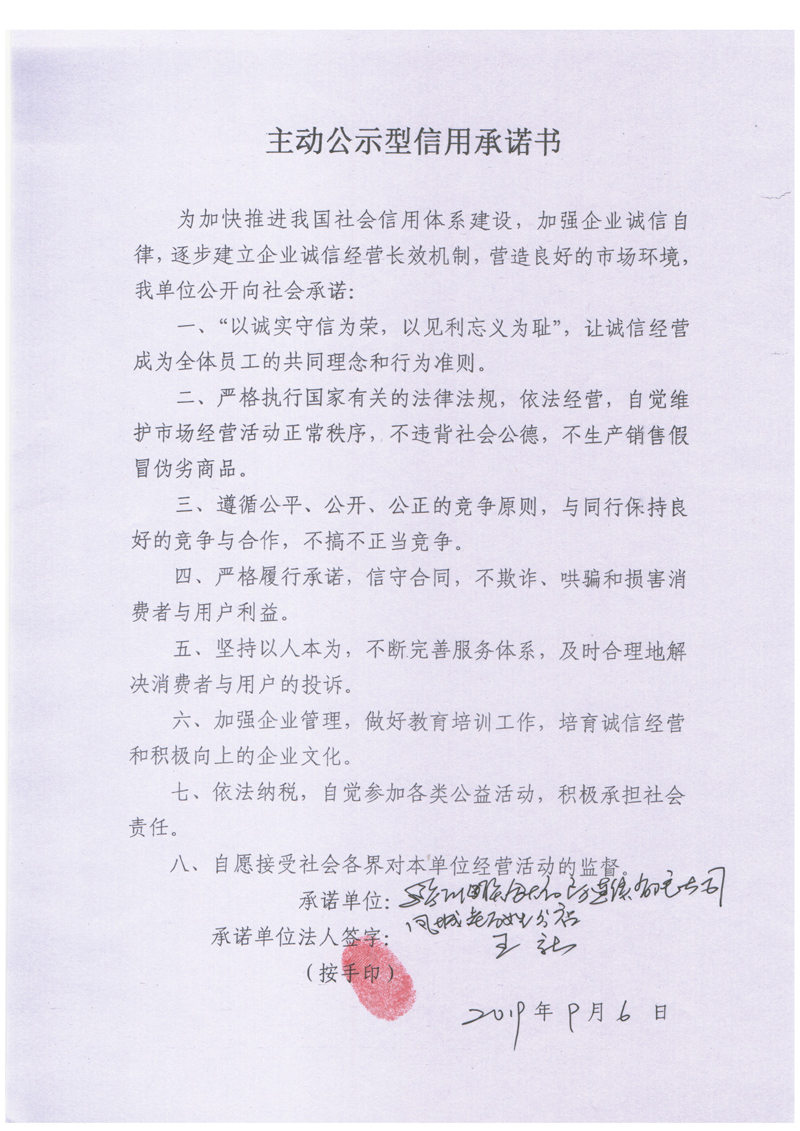 主动公示型信用承诺书
为加快推进我国社会信用体系建设，加强企业诚信自
律，逐步建立企业诚信经营长效机制，营造良好的市场环境，
我单位公开向社会承诺：
一、“以诚实守信为荣，以见利忘义为耻”，让诚信经营
成为全体员工的共同理念和行为准则。
二、严格执行国家有关的法律法规，依法经营，自觉维
护市场经营活动正常秩序，不违背社会公德，不生产销售假
冒伪劣商品。
三、遵循公平、公开、公正的竞争原则，与同行保持良
好的竞争与合作，不搞不正当竞争。
四、严格履行承诺，信守合同，不欺诈、哄骗和损害消
费者与用户利益。
五、坚持以人本为，不断完善服务体系，及时合理地解
决消费者与用户的投诉。
六、加强企业管理，做好教育培训工作，培育诚信经营
和积极向上的企业文化。
七、依法纳税，自觉参加各类公益活动，积极承担社会
责任。
八、自愿接受社会各界对本单位经营活动的监督。
承诺单位：公司
凤城老百姓分店
承诺单位法人签字：王
（按手印）
2019年9月6日